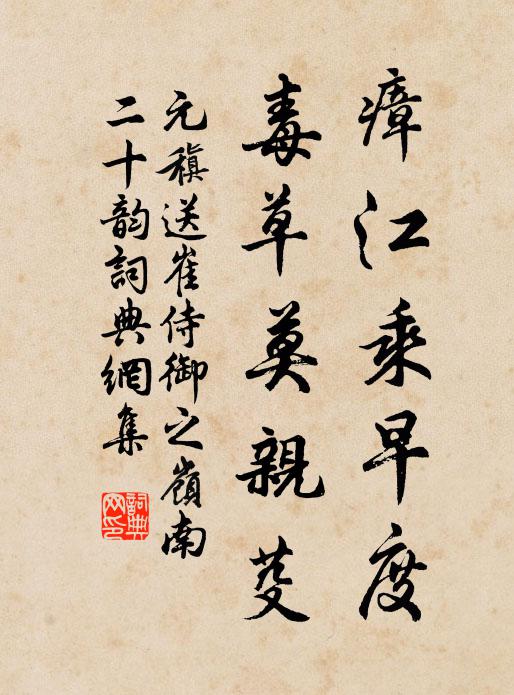 瘴江乘早度
毒草莫親芟
元稹送崔侍御之嶺南
二十韵詞典網集
詞典
网印